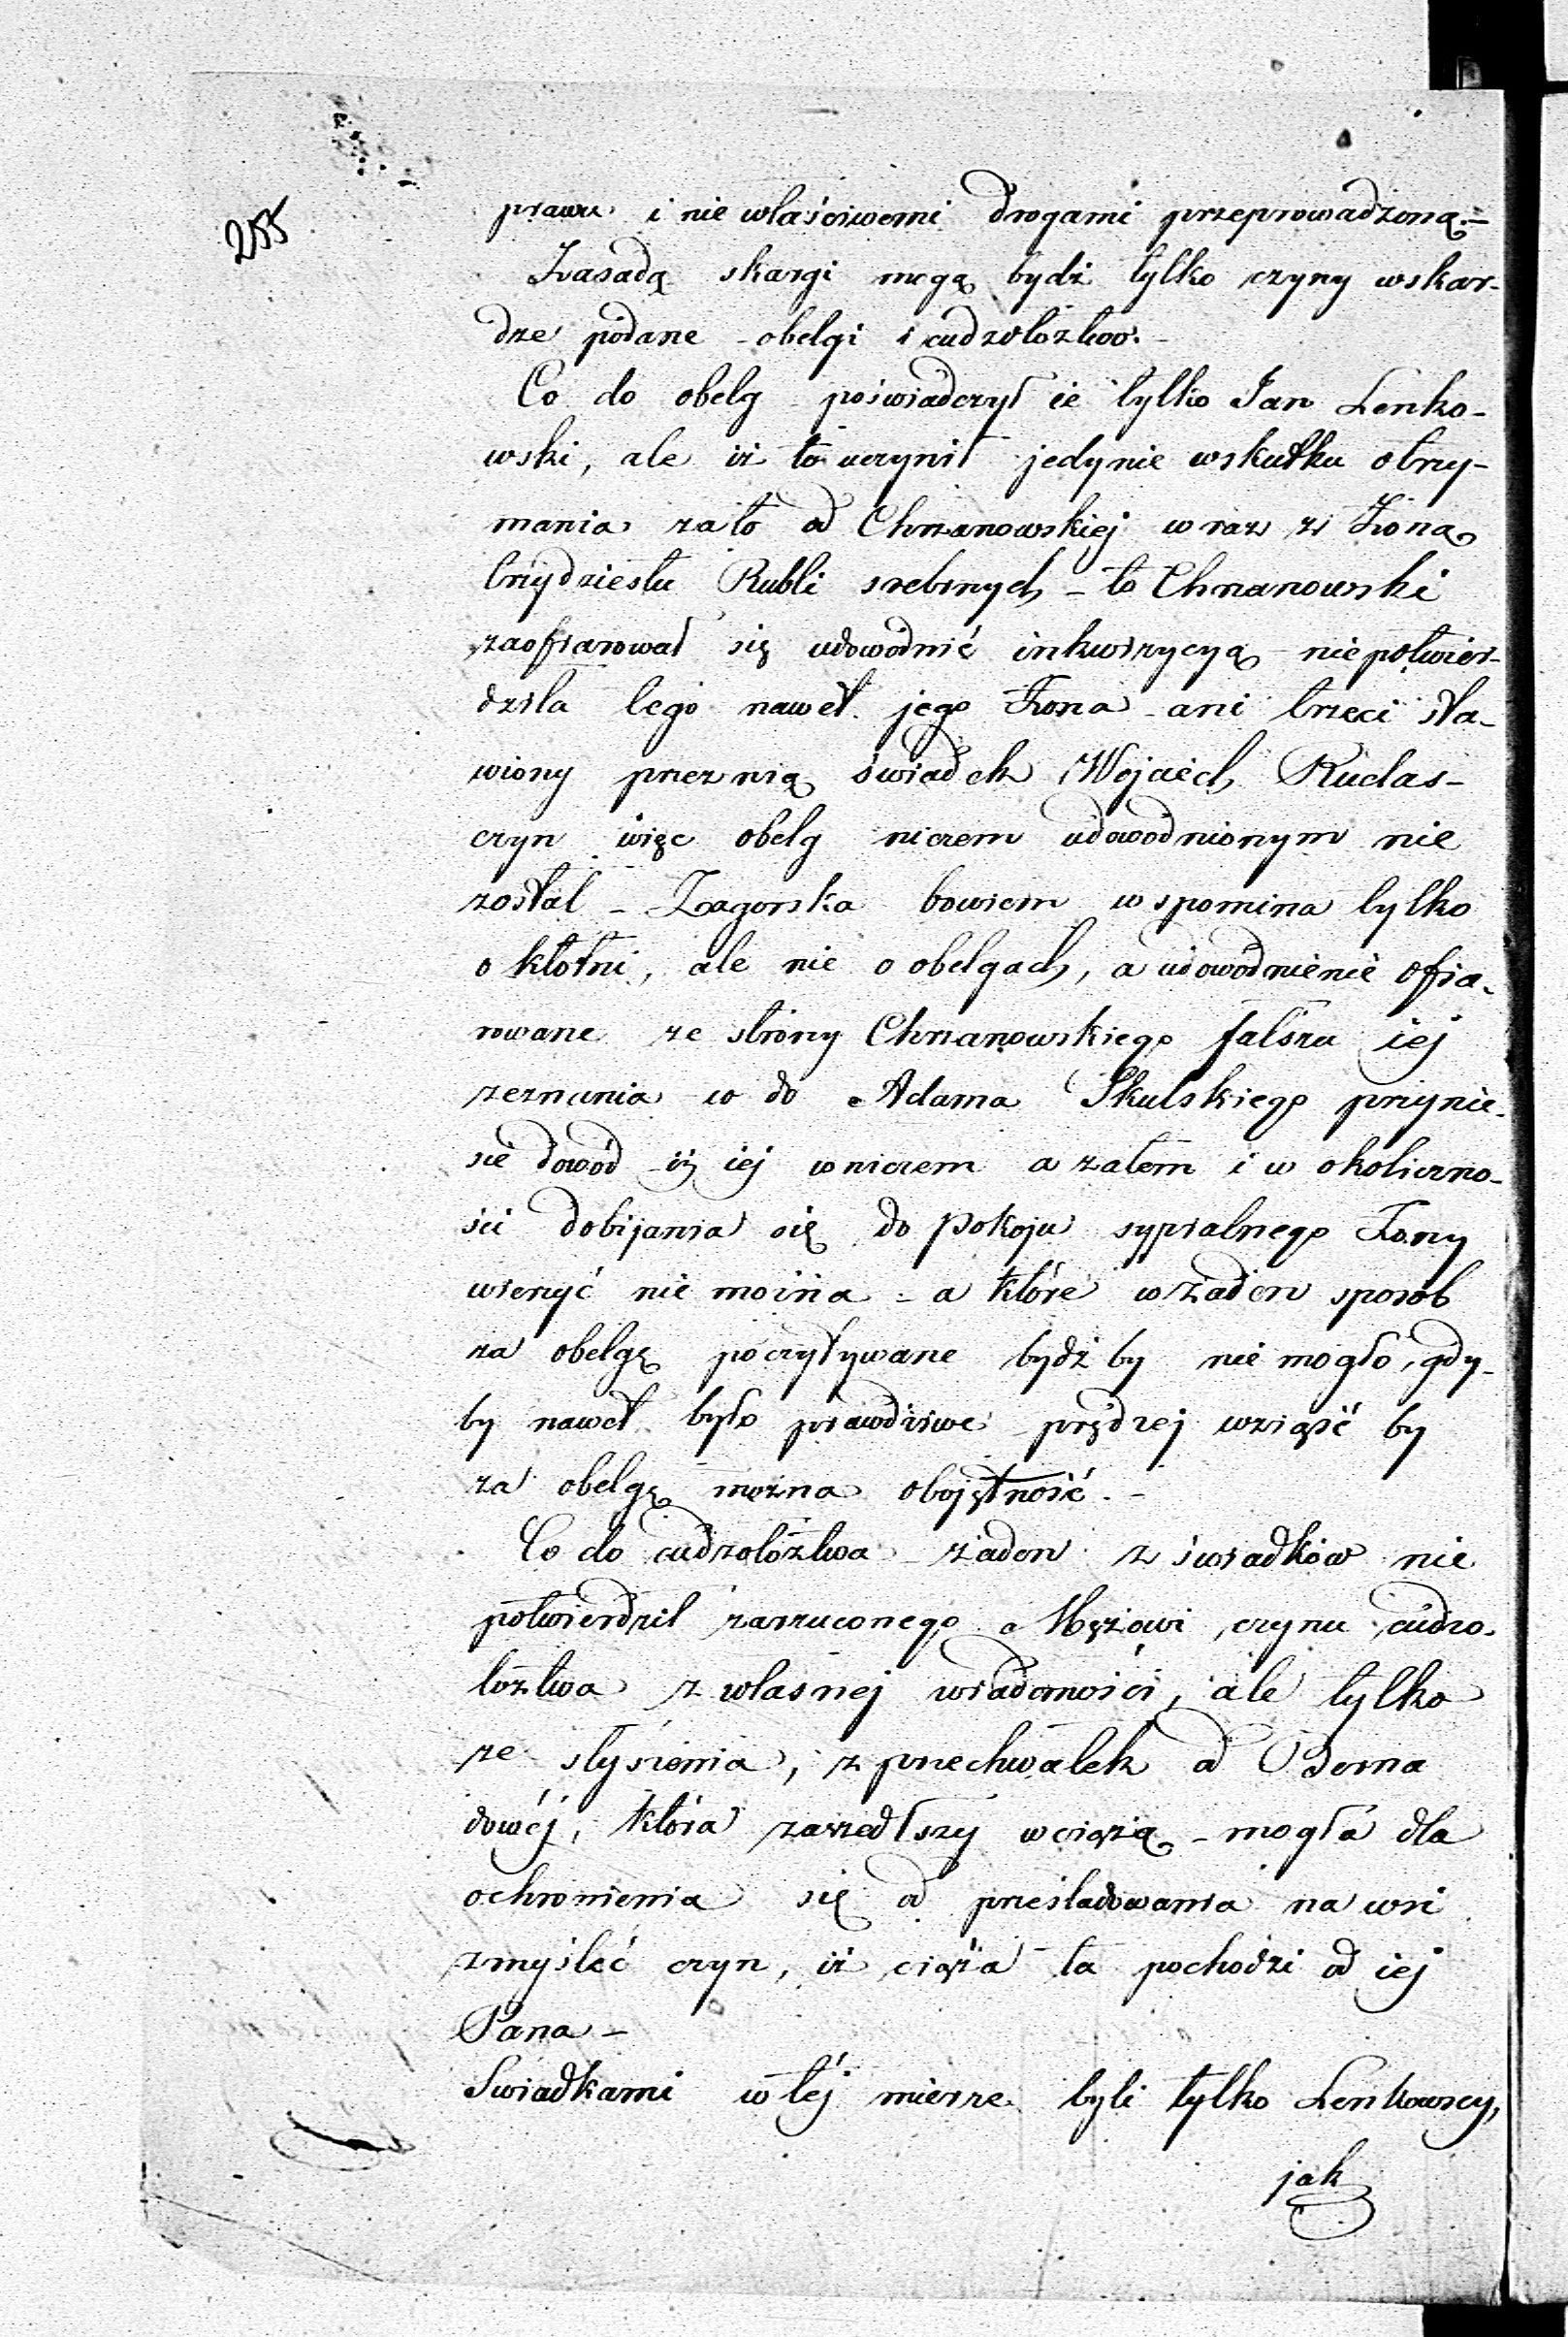 255
prawu i nie właściwemi drogami przeprowadzoną.-
Zasadą skargi mogą bydź tylko czyny wskar-
dze podane - obelgi i cudzołoztwo.-
Co do obelg - poświadczył ie tylko Jan Lenko-
wski, ale iż to uczynił jedynie wskutku otrzy-
mania za to od Chrzanowskiej wraz z Żoną
trzydziestu Rubli srebrnych - to Chrzanowski
zaofiarował się udowodnić inkwizycyą - nie potwier-
dziła tego nawet jego Żona - ani trzeci sta-
wiony przez nią świadek Wojciech Kudas -
czyn więc obelg niczem udowodnionym nie
został - Zagorska bowiem wspomina tylko
o kłótni, ale nie o obelgach, a udowodnienie ofia-
rowane ze strony Chrzanowskiego fałszu iej
zeznania co do Adama Skulskiego przynie-
sie dowód iż iej wniczem a zatem i w okoliczno-
ści dobijania się do Pokoju sypialnego Żony
wierzyć nie można - a które w żaden sposób
za obelgę poczytywane bydź by nie mogło, gdy-
by nawet było prawdziwe prędzej wziąść by
za obelgę można obojętność. -
Co do cudzołóztwa - żaden z świadków nie
potwierdził zarzuconego Mężowi czynu cudzo-
łoztwa z własnej wiadomości, ale tylko
ze słyszenia, z przechwałek od
dowéj, która zaszedłszy wciążą - mogła dla
ochronienia się od prześladowania na wsi
zmyśleć czyn, iż ciąża ta pochodzi od iej
Pana -
Swiadkami w téj mierze byli tylko Lenkowscy,
jak